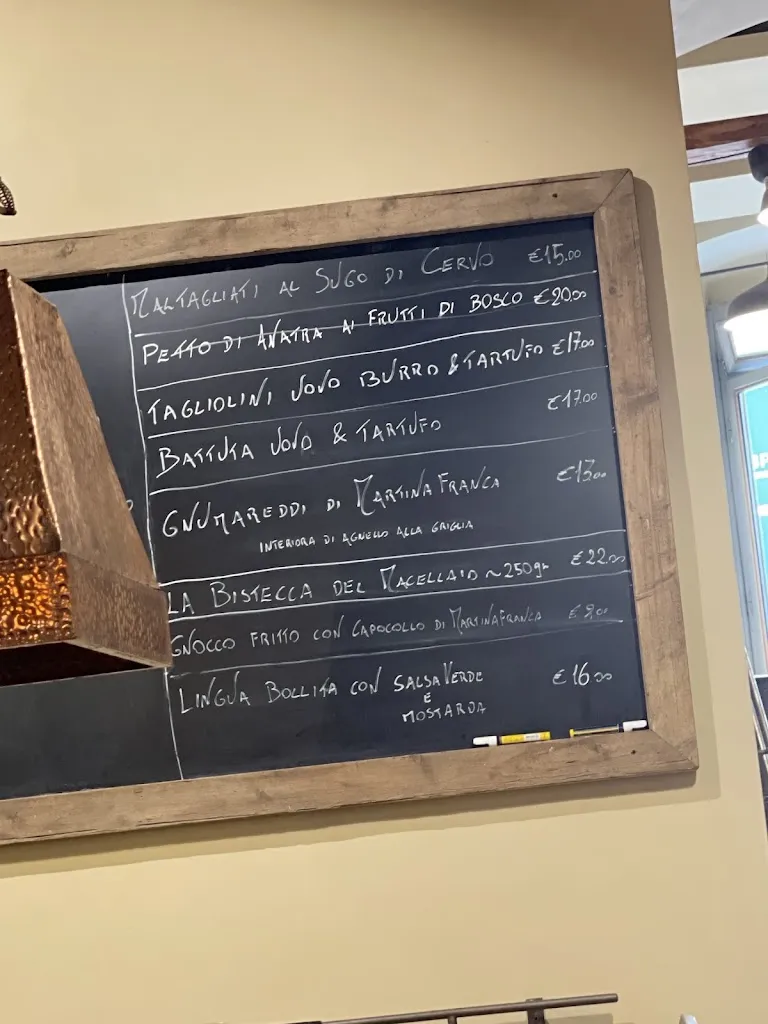 MALTAGLIATI AL SUGO DI CERVO €15.00
PETTO DI ANATRA AI FRUTTI DI BOSCO €20.00
TAGLIOLINI UOVO BURRO & TARTUFO €17.00
BATTUTA UOVO & TARTUFO €17.00
GNUMAREDDI DI MARTINA FRANCA €13.00
INTERIORA DI AGNELLO ALLA GRIGLIA
LA BISTECCA DEL MACELLAIO ~250gr €22.00
GNOCCO FRITTO CON CAPOCOLLO DI MARTINAFRANCA € 9.00
LINGUA BOLLITA CON SALSA VERDE €16.00
E
MOSTARDA